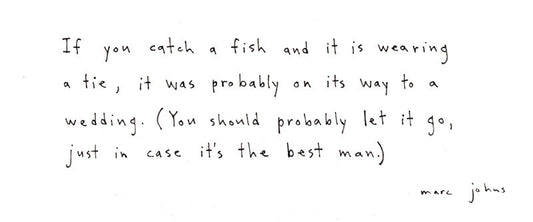 If you catch a fish and it is wearing
a tie, it was probably on its way to a
wedding. (You should probably let it go,
just in case it's the best man.)
marc johns